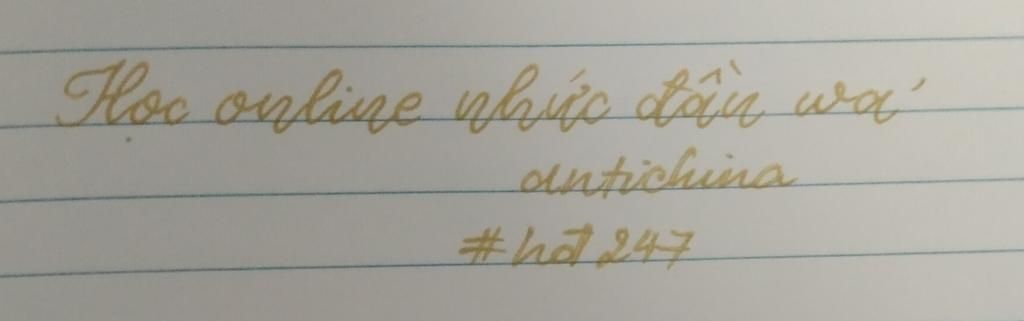 Học online nhức đầu wá
antichina
#hđ247